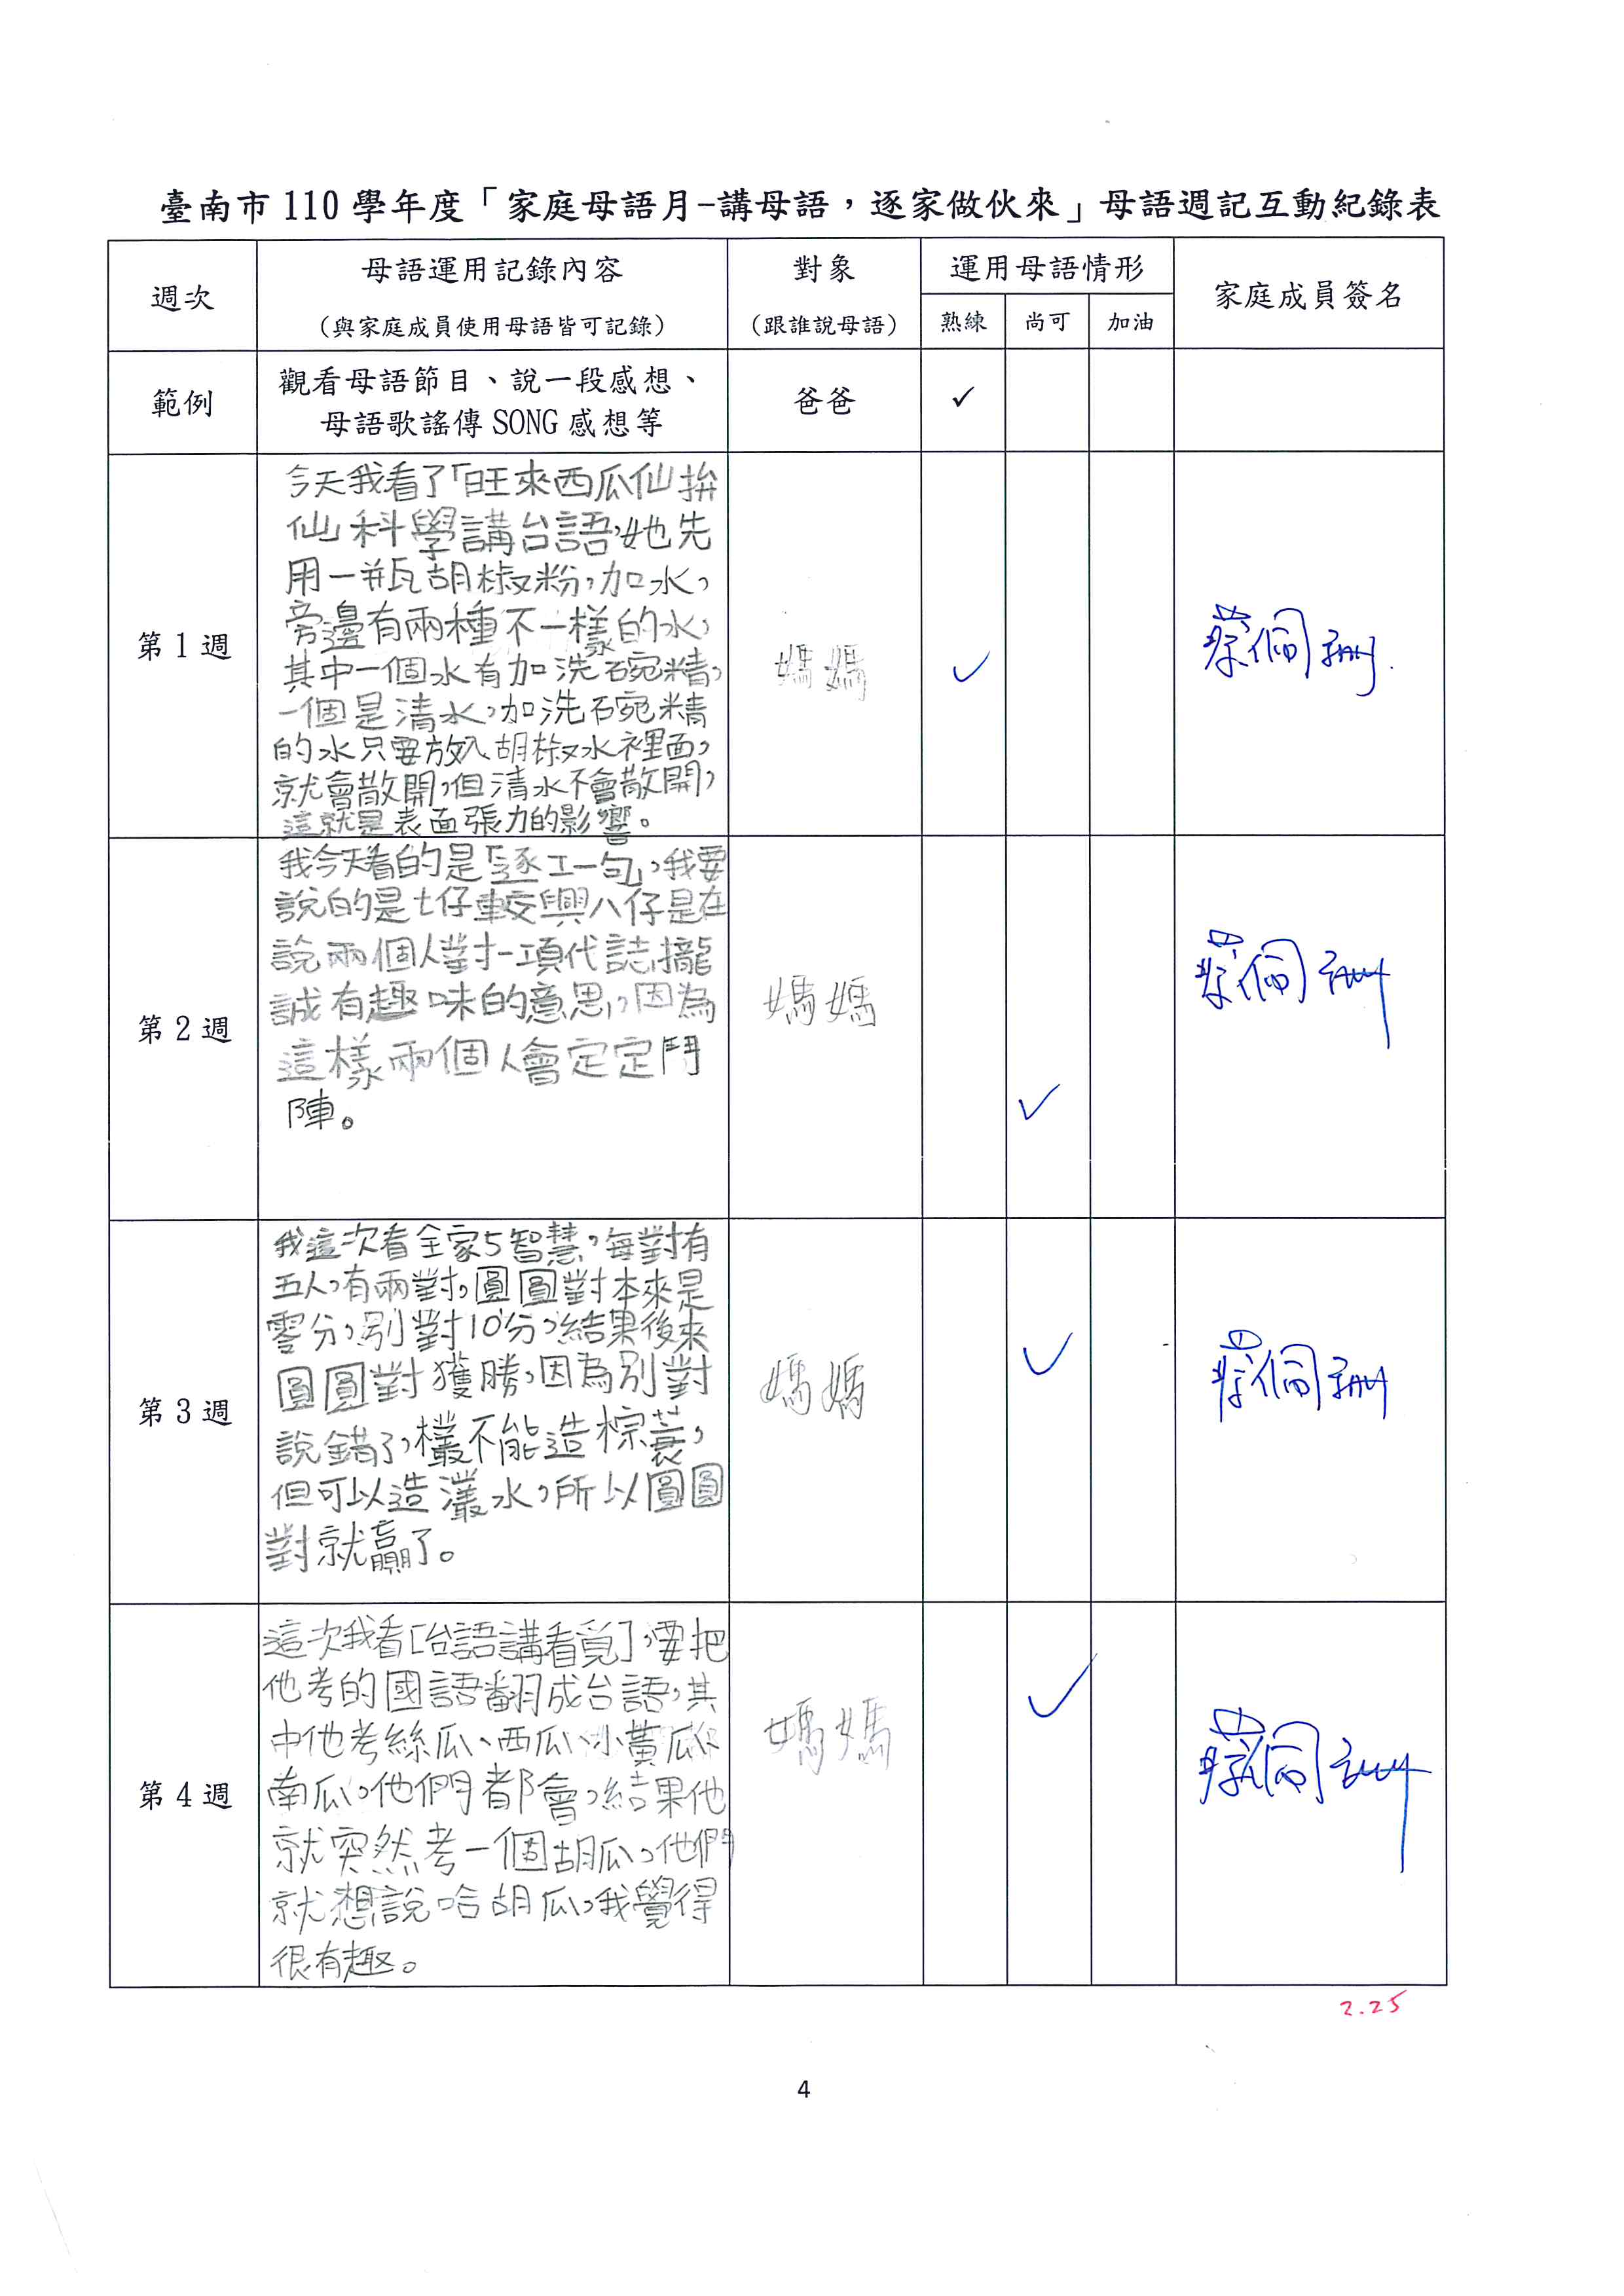 臺南市 110 學年度「家庭母語月-講母語，逐家做伙來」母語週記互動紀錄表
週次
母語運用記錄內容
（與家庭成員使用母語皆可記錄）
對象
（跟誰說母語）
運用母語情形
熟練 尚可 加油
家庭成員簽名
範例
觀看母語節目、說一段感想、
母語歌謠傳 SONG 感想等
爸爸
✓
第 1 週
今天我看了「旺來西瓜仙拚
仙」科學講台語，她先
用一瓶胡椒粉，加水，
旁邊有兩種不一樣的水，
其中一個水有加洗碗精，
一個是清水，加洗碗精
的水只要放入胡椒水裡面，
就會散開，但清水不會散開，
這就是表面張力的影響。
媽媽
✓
第 2 週
我今天看的是「逐工一句」，我要
說的是七仔較興八仔是在
說兩個人對一項代誌攏
誠有趣味的意思，因為
這樣兩個人會定定鬥
陣。
媽媽
✓
第 3 週
我這次看全家5智慧，每對有
五人，有兩對。圓圓對本來是
零分，別對10分，結果後來
圓圓對獲勝，因為別對
說錯了，欉不能造棕蓑，
但可以造灇水，所以圓圓
對就贏了。
媽媽
✓
第 4 週
這次我看[台語講看覓]，要把
他考的國語翻成台語，其
中他考絲瓜、西瓜、小黃瓜、
南瓜，他們都會，結果他
就突然考一個胡瓜，他們
就想說哈胡瓜，我覺得
很有趣。
媽媽
✓
2.25
4